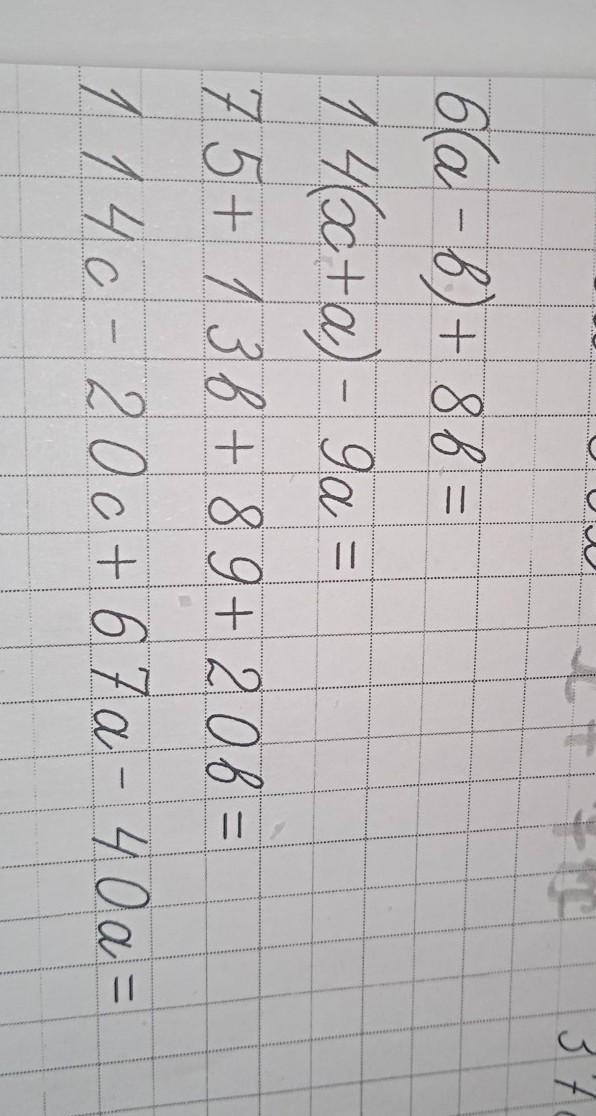 6(a - в) + 8в =
14(x + a) - 9a =
75 + 13в + 89 + 20в =
114c - 20c + 67a - 40a =